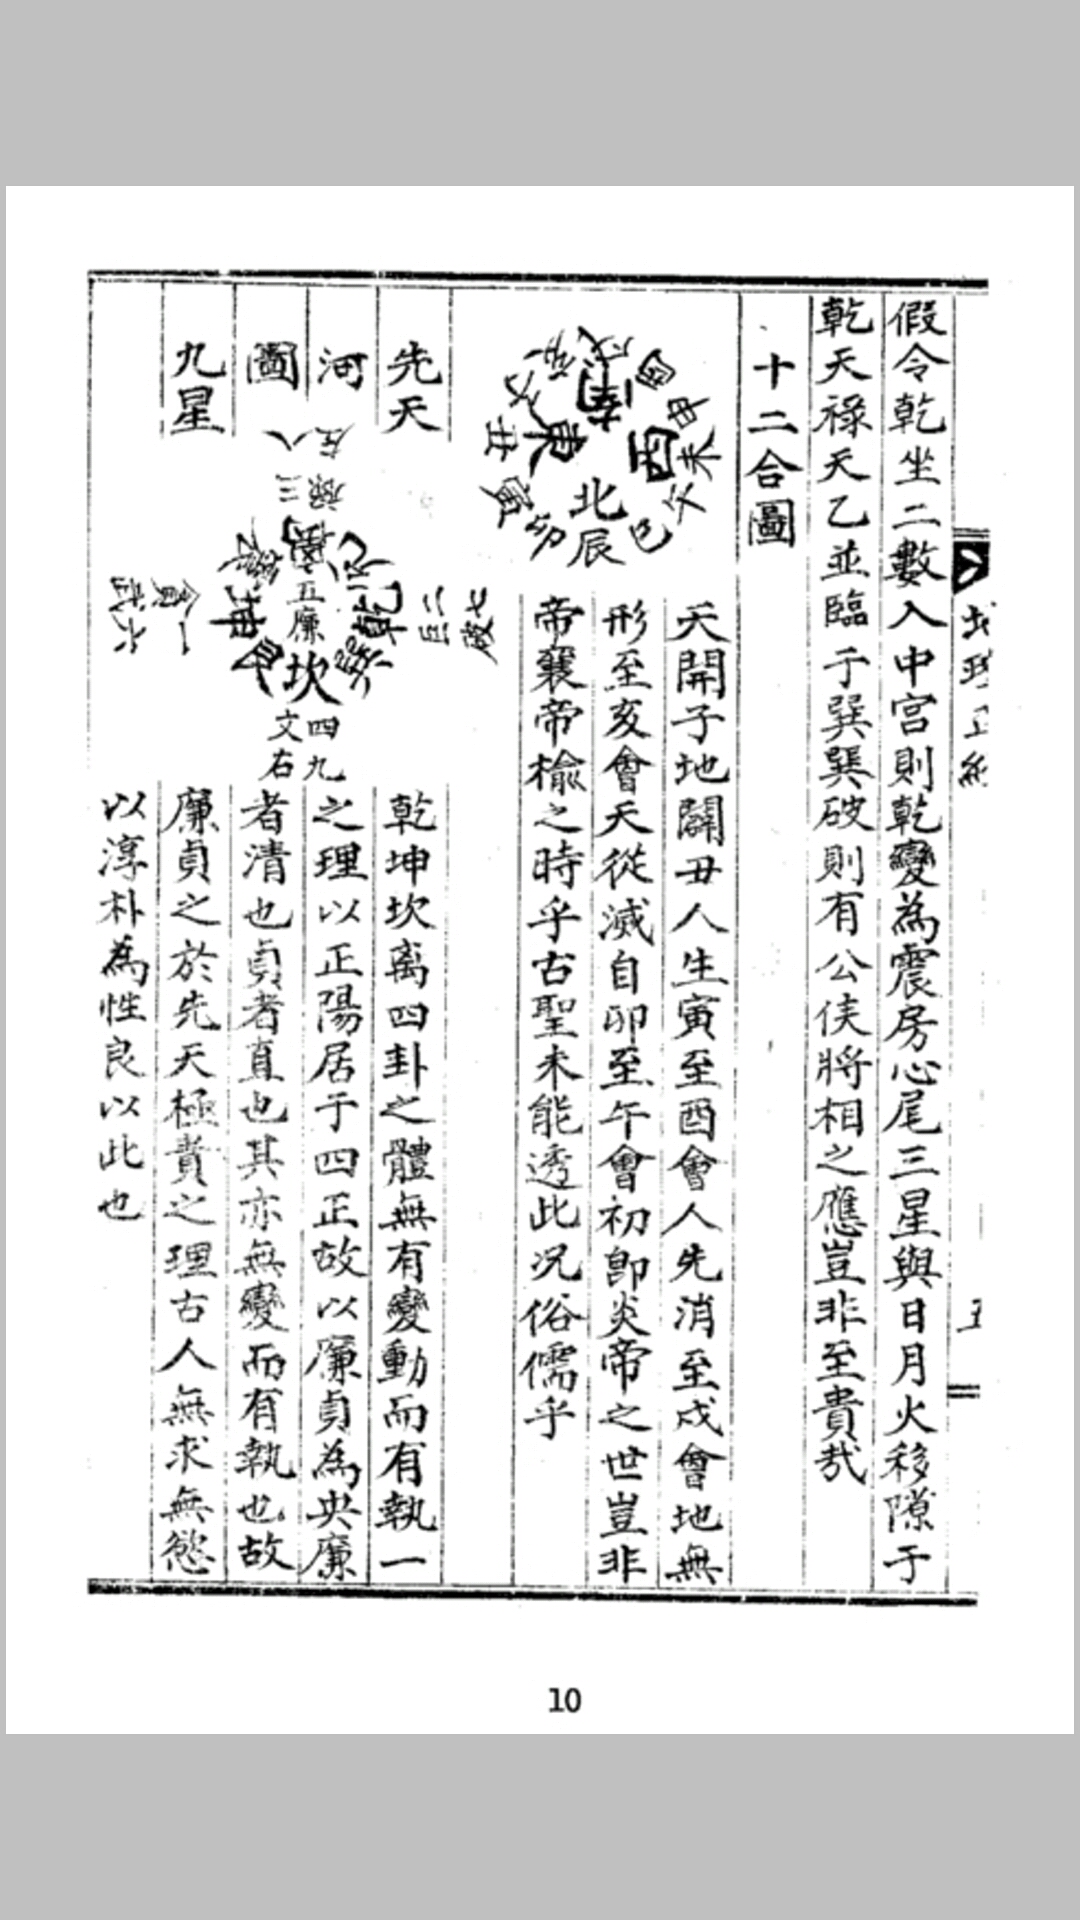 假令乾坐二數入中宮則乾變為震房心尾三星與日月火移隙于
乾天祿天乙並臨于巽巽破則有公侯將相之應豈非至貴哉
十二合圖
南
酉
東
北
戌
酉
申
未
午
巳
辰
卯
寅
丑
天開子地闢丑人生寅至酉會人先消至戌會地無
形至亥會天從滅自卯至午會初即炎帝之世豈非
帝襄帝榆之時乎古聖未能透此況俗儒乎
先天
河
圖
九星
左八
祿三
五廉
乾
坎
四九
文右
巨二
七
一
六
乾坤坎离四卦之體無有變動而有執一
之理以正陽居于四正故以廉貞為央廉
者清也貞者直也其亦無變而有執也故
廉貞之於先天極貴之理古人無求無慾
以淳朴為性良以此也
10